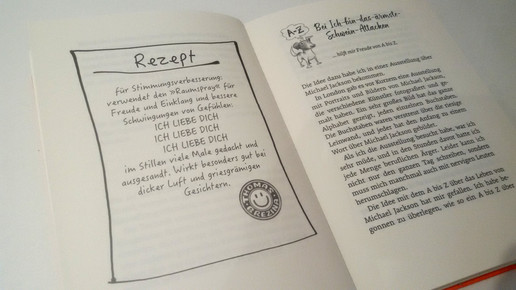 Rezept
Für Stimmungsverbesserung,
verwendet den »Raumspray« für
Freude und Einklang und bessere
Schwingungen von Gefühlen:
ICH LIEBE DICH
ICH LIEBE DICH
ICH LIEBE DICH
im Stillen viele Male gedacht und
ausgesandt. Wirkt besonders gut bei
dicker Luft und griesgrämigen
Gesichtern.
THOMAS
BREZINA
A-Z
Bei Ich-bin-das-ärmste-
Schwein-Attacken
... hilft nur Freude von A bis Z.
Die Idee dazu habe ich in einer Ausstellung über
Michael Jackson bekommen.
In London gab es vor Kurzem eine Ausstellung
mit Porträts und Bildern von Michael Jackson,
die verschiedene Künstler fotografiert und ge-
malt haben. Ein sehr großes Bild hat das ganze
Alphabet gezeigt, jeden einzelnen Buchstaben.
Die Buchstaben waren verstreut über die riesige
Leinwand, und jeder hat den Anfang zu einem
Wort über Michael Jackson gebildet.
Als ich die Ausstellung besucht habe, war ich
sehr müde, und in den Stunden davor hatte ich
jede Menge beruflichen Ärger. Leider kann ich
nicht nur den ganzen Tag schreiben, sondern
muss mich manchmal auch mit nervigen Leuten
herumschlagen.
Die Idee mit dem A bis Z über das Leben von
Michael Jackson hat mir gefallen. Ich habe be-
gonnen zu überlegen, wie so ein A bis Z über